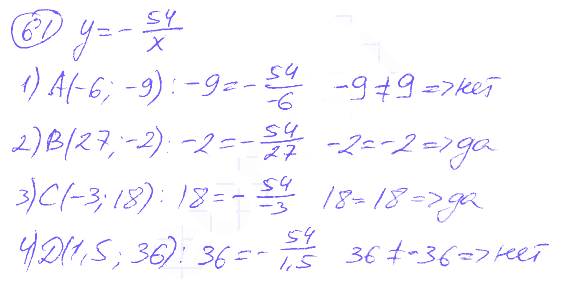 61 y = -54/x
1) A(-6; -9): -9 = -54/-6 -9 ≠ 9 => нет
2) B(27; -2): -2 = -54/27 -2 = -2 => да
3) C(-3; 18): 18 = -54/-3 18 = 18 => да
4) D(1,5; 36): 36 = -54/1,5 36 ≠ -36 => нет